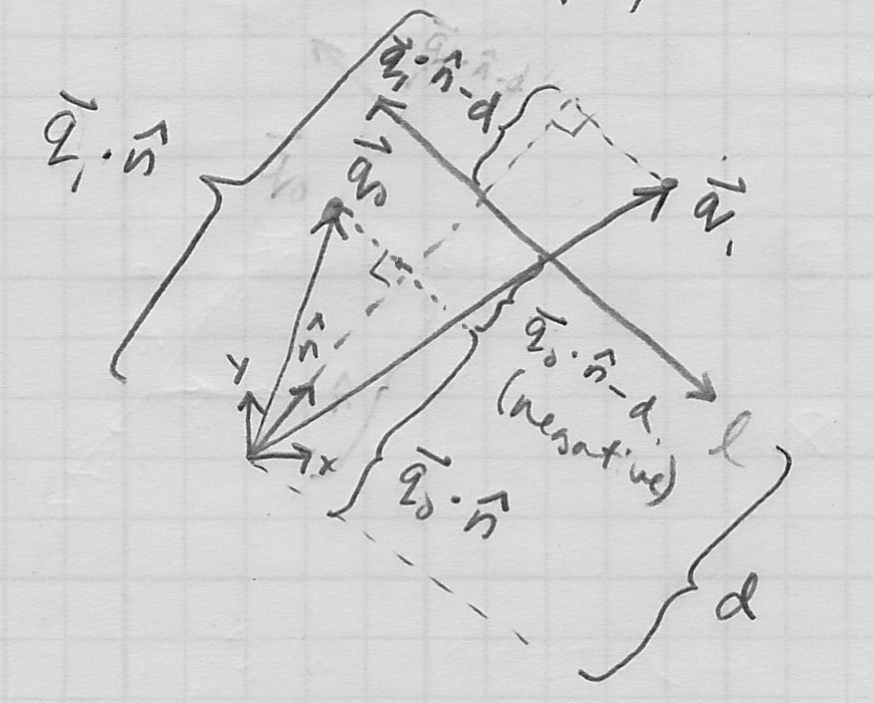 q⃗₁·n̂-d
q⃗₁·n̂
q⃗₀
q⃗₁
n̂
y
x
q⃗₀·n̂-d
(negative)
l
q⃗₀·n̂
d